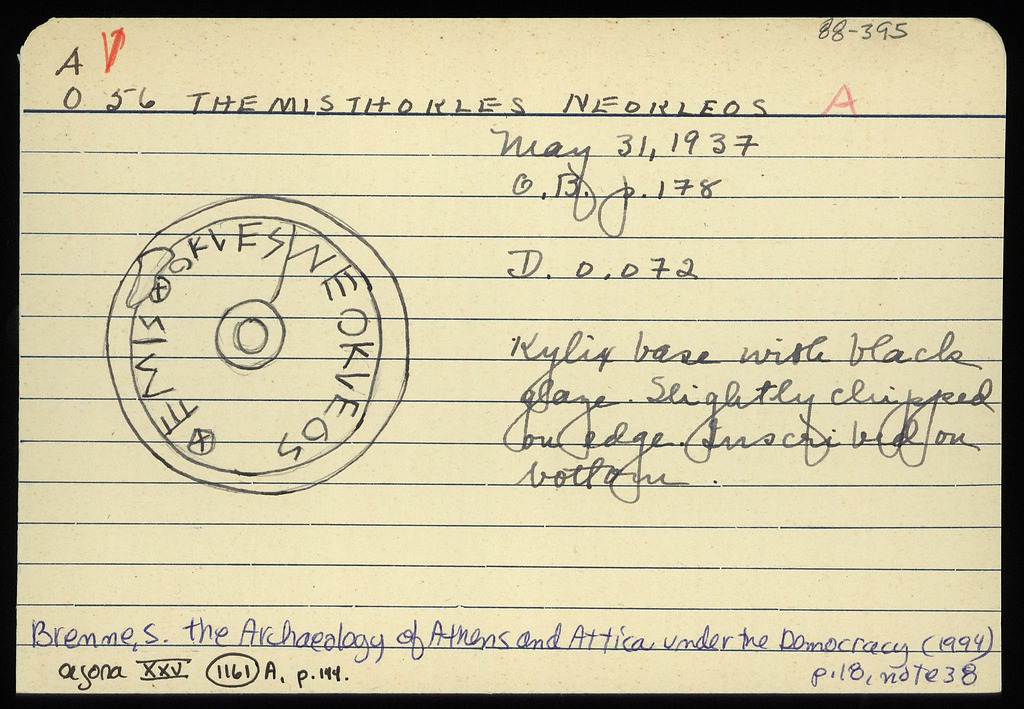 88-395
A
O 56 THEMISTHOKLES NEOKLEOS A
May 31, 1937
O.B. p. 178
D. 0.072
ⴲEMISⴲOKVES NEOKVEOS
Kylix base with black
glaze. Slightly chipped
on edge. Inscribed on
bottom.
Bremme, S. the Archaeology of Athens and Attica under the Democracy (1994)
p.18, note 38
agora XXV 1161 A, p.144.